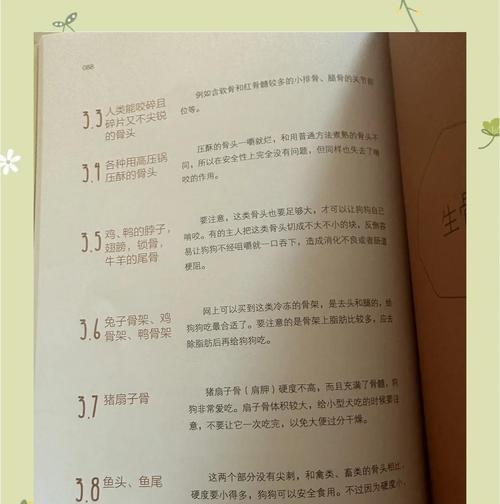 088
3.3 人类能咬碎且
碎片又不尖锐
的骨头
例如含软骨和红骨髓较多的小排骨、腿骨的关节部
位等。
3.4 各种用高压锅
压酥的骨头
压酥的骨头一嚼就烂，和用普通方法煮熟的骨头不
同，所以在安全性上完全没有问题，但同样也失去了啃
咬的作用。
3.5 鸡、鸭的脖子，
翅膀，锁骨，
牛羊的尾骨
要注意，这类骨头也要足够大，才可以让狗狗自己
啃咬。有的主人把这类骨头切成不大不小的块，反倒容
易让狗狗不经咀嚼就一口吞下，造成消化不良或者肠道
梗阻。
3.6 兔子骨架、鸡
骨架、鸭骨架
网上可以买到这类冷冻的骨架，是去头和腿的，给
狗狗吃最合适了。要注意的是骨架上脂肪比较多，应去
除脂肪后再给狗狗吃。
3.7 猪扇子骨
猪扇子骨（肩胛）硬度不高，而且充满了骨髓，狗
狗非常爱吃。扇子骨体积较大，给小型犬吃的时候要注
意，不要让它一次吃完，以免大便过分干燥。
3.8 鱼头、鱼尾
这两个部分没有尖刺，和禽类、畜类的骨头相比，
硬度要小得多，狗狗可以安全食用。不过因为硬度小，
生骨